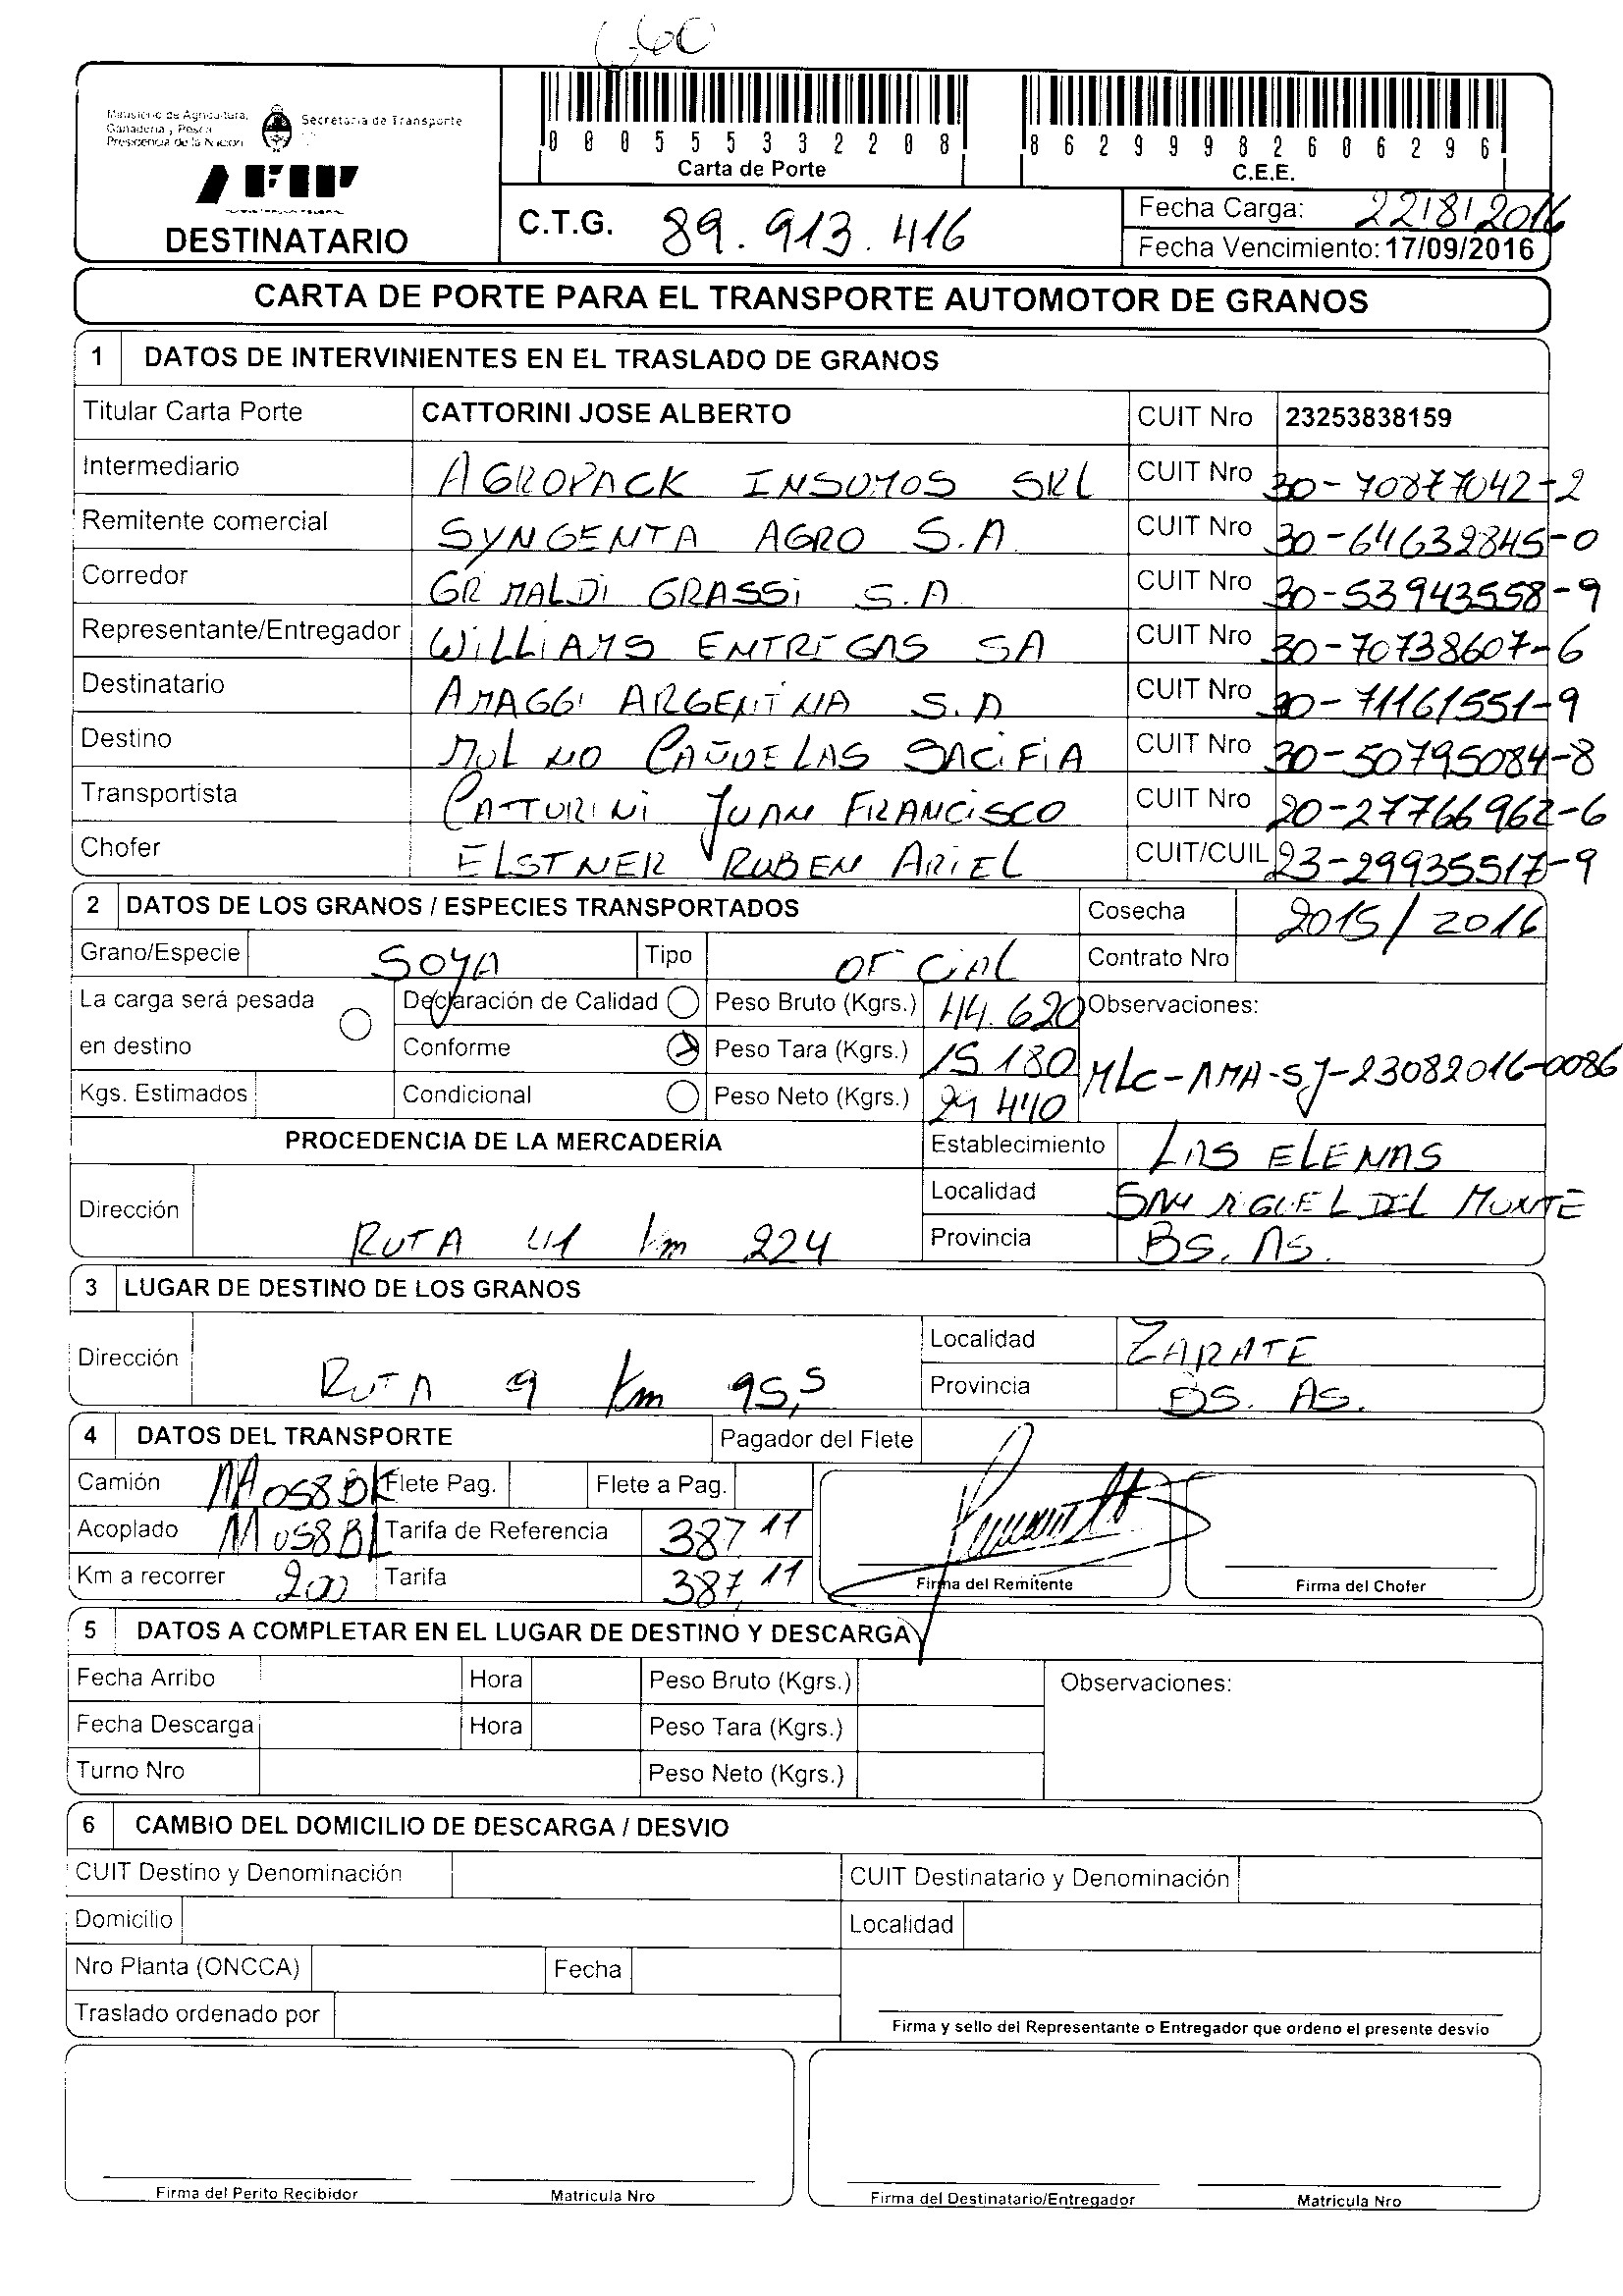 Ministerio de Agricultura,
Ganadería y Pesca
Presidencia de la Nación
Secretaría de Transporte
AFIP
DESTINATARIO
000555332208
Carta de Porte
86299982606296
C.E.E.
C.T.G. 89.913.416
Fecha Carga: 22/8/2016
Fecha Vencimiento: 17/09/2016
CARTA DE PORTE PARA EL TRANSPORTE AUTOMOTOR DE GRANOS
1 DATOS DE INTERVINIENTES EN EL TRASLADO DE GRANOS
Titular Carta Porte CATTORINI JOSE ALBERTO CUIT Nro 23253838159
Intermediario AGROPACK INSUMOS SRL CUIT Nro 30-70877042-2
Remitente comercial SYNGENTA AGRO S.A. CUIT Nro 30-64632845-0
Corredor GRIMALDI GRASSI S.A. CUIT Nro 30-53943558-9
Representante/Entregador WILLIAMS ENTREGAS SA CUIT Nro 30-70738607-6
Destinatario AMAGGI ARGENTINA S.A CUIT Nro 30-71161551-9
Destino MOLINO CAÑUELAS SACIFIA CUIT Nro 30-50795084-8
Transportista CATTORINI JUAN FRANCISCO CUIT Nro 20-27766962-6
Chofer ELSTNER RUBEN ARIEL CUIT/CUIL 23-29935517-9
2 DATOS DE LOS GRANOS / ESPECIES TRANSPORTADOS Cosecha 2015/2016
Grano/Especie SOYA Tipo OFICIAL Contrato Nro
La carga será pesada Declaración de Calidad Peso Bruto (Kgrs.) 44.620 Observaciones:
en destino Conforme Peso Tara (Kgrs.) 15180 MLC-AMA-SJ-23082016-0086
Kgs. Estimados Condicional Peso Neto (Kgrs.) 29440
PROCEDENCIA DE LA MERCADERÍA Establecimiento LAS ELENAS
Localidad SAN MIGUEL DEL MONTE
Dirección RUTA 41 Km 224 Provincia BS. AS.
3 LUGAR DE DESTINO DE LOS GRANOS
Localidad ZARATE
Dirección RUTA 9 Km 95,5 Provincia BS. AS.
4 DATOS DEL TRANSPORTE Pagador del Flete
Camión AA058BK Flete Pag. Flete a Pag.
Acoplado AA058BL Tarifa de Referencia 387,11
Km a recorrer 200 Tarifa 387,11
Firma del Remitente Firma del Chofer
5 DATOS A COMPLETAR EN EL LUGAR DE DESTINO Y DESCARGA
Fecha Arribo Hora Peso Bruto (Kgrs.) Observaciones:
Fecha Descarga Hora Peso Tara (Kgrs.)
Turno Nro Peso Neto (Kgrs.)
6 CAMBIO DEL DOMICILIO DE DESCARGA / DESVIO
CUIT Destino y Denominación CUIT Destinatario y Denominación
Domicilio Localidad
Nro Planta (ONCCA) Fecha
Traslado ordenado por
Firma y sello del Representante o Entregador que ordeno el presente desvío
Firma del Perito Recibidor Matricula Nro Firma del Destinatario/Entregador Matricula Nro